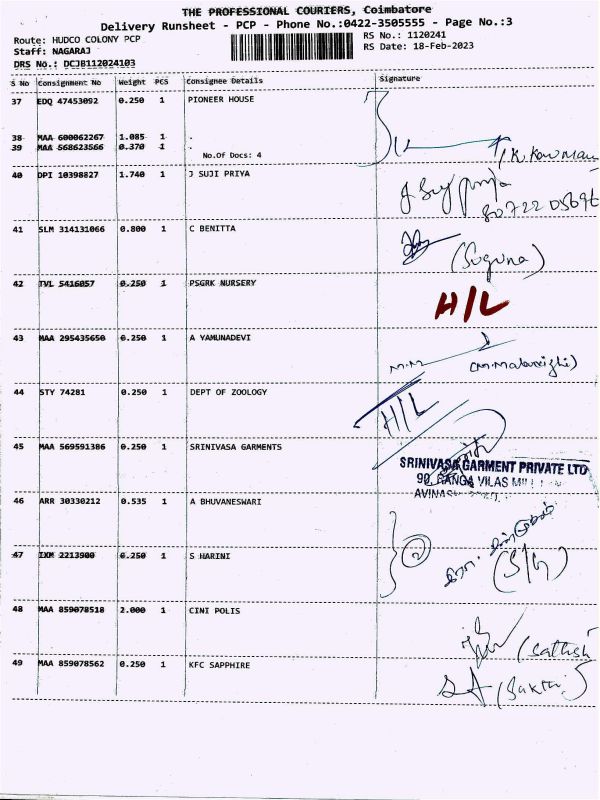 THE PROFESSIONAL COURIERS, Coimbatore
Delivery Runsheet - PCP - Phone No.:0422-3505555 - Page No.:3
Route: HUDCO COLONY PCP
RS No.: 1120241
Staff: NAGARAJ
RS Date: 18-Feb-2023
DRS No.: DCJB112024103
S No Consignment No Weight PCS Consignee Details Signature
37 EDQ 47453092 0.250 1 PIONEER HOUSE
38 MAA 600062267 1.085 1 .
39 MAA 568623566 0.370 1 .
No.Of Docs: 4
40 OPI 10398827 1.740 1 J SUJI PRIYA
41 SLM 314131066 0.800 1 C BENITTA
(Suguna)
42 TVL 5416057 0.250 1 PSGRK NURSERY
H/L
43 MAA 295435650 0.250 1 A YAMUNADEVI
44 STY 74281 0.250 1 DEPT OF ZOOLOGY
H/L
45 MAA 569591386 0.250 1 SRINIVASA GARMENTS
SRINIVASA GARMENT PRIVATE LTD
90, RANGA VILAS
46 ARR 30330212 0.535 1 A BHUVANESWARI
47 IXM 2213900 0.250 1 S HARINI
2
48 MAA 859078518 2.000 1 CINI POLIS
(Sathish
49 MAA 859078562 0.250 1 KFC SAPPHIRE
(Sakthi)